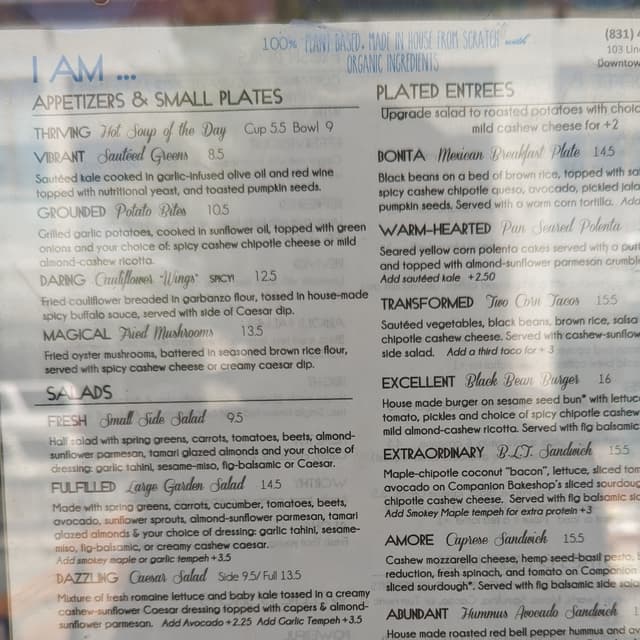 100% PLANT BASED, MADE IN HOUSE FROM SCRATCH with
ORGANIC INGREDIENTS
(831)
103 Lin
Downtow
I AM ...
APPETIZERS & SMALL PLATES
THRIVING Hot Soup of the Day Cup 5.5 Bowl 9
VIBRANT Sautéed Greens 8.5
Sautéed kale cooked in garlic-infused olive oil and red wine
topped with nutritional yeast, and toasted pumpkin seeds.
GROUNDED Potato Bites 10.5
Grilled garlic potatoes, cooked in sunflower oil, topped with green
onions and your choice of: spicy cashew chipotle cheese or mild
almond-cashew ricotta.
DARING Cauliflower "Wings" SPICY! 12.5
Fried cauliflower breaded in garbanzo flour, tossed in house-made
spicy buffalo sauce, served with side of Caesar dip.
MAGICAL Fried Mushrooms 13.5
Fried oyster mushrooms, battered in seasoned brown rice flour,
served with spicy cashew cheese or creamy caesar dip.
SALADS
FRESH Small Side Salad 9.5
Half salad with spring greens, carrots, tomatoes, beets, almond-
sunflower parmesan, tamari glazed almonds and your choice of
dressing: garlic tahini, sesame-miso, fig-balsamic or Caesar.
FULFILLED Large Garden Salad 14.5
Made with spring greens, carrots, cucumber, tomatoes, beets,
avocado, sunflower sprouts, almond-sunflower parmesan, tamari
glazed almonds & your choice of dressing: garlic tahini, sesame-
miso, fig-balsamic, or creamy cashew caesar.
Add smokey maple or garlic tempeh +3.5
DAZZLING Caesar Salad Side 9.5/ Full 13.5
Mixture of fresh romaine lettuce and baby kale tossed in a creamy
cashew-sunflower Caesar dressing topped with capers & almond-
sunflower parmesan. Add Avocado +2.25 Add Garlic Tempeh +3.5
PLATED ENTREES
Upgrade salad to roasted potatoes with choic
mild cashew cheese for +2
BONITA Mexican Breakfast Plate 14.5
Black beans on a bed of brown rice, topped with sa
spicy cashew chipotle queso, avocado, pickled jala
pumpkin seeds. Served with a warm corn tortilla. Add
WARM-HEARTED Pan Seared Polenta
Seared yellow corn polenta cakes served with a pur
and topped with almond-sunflower parmesan crumbl
Add sautéed kale +2.50
TRANSFORMED Two Corn Tacos 15.5
Sautéed vegetables, black beans, brown rice, salsa
chipotle cashew cheese. Served with cashew-sunflow
side salad. Add a third taco for + 3
EXCELLENT Black Bean Burger 16
House made burger on sesame seed bun* with lettuc
tomato, pickles and choice of spicy chipotle cashew
mild almond-cashew ricotta. Served with fig balsamic
EXTRAORDINARY B.L.T. Sandwich 15.5
Maple-chipotle coconut "bacon", lettuce, sliced tom
avocado on Companion Bakeshop's sliced sourdoug
chipotle cashew cheese. Served with fig balsamic sid
Add Smokey Maple tempeh for extra protein +3
AMORE Caprese Sandwich 15.5
Cashew mozzarella cheese, hemp seed-basil pesto,
reduction, fresh spinach, and tomato on Companion
sliced sourdough*. Served with fig balsamic side sala
ABUNDANT Hummus Avocado Sandwich 1
House made roasted red bell pepper hummus and av